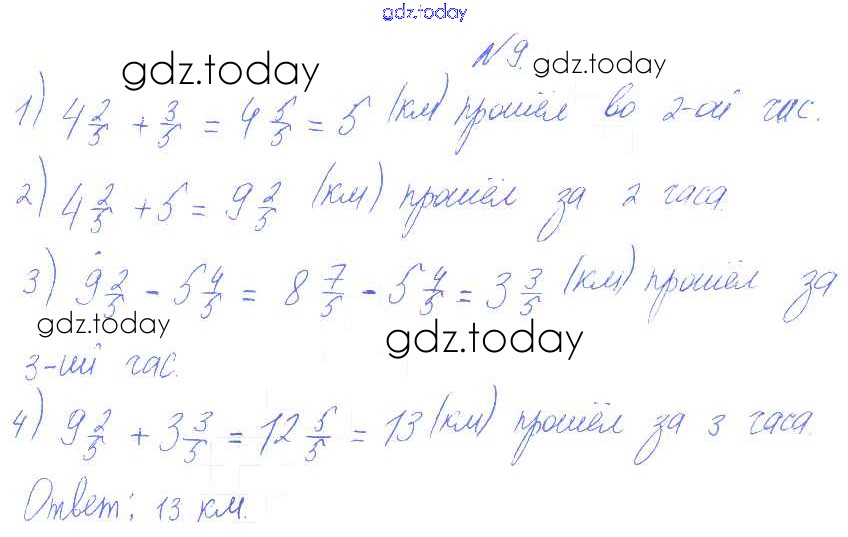 gdz.today
gdz.today №9. gdz.today
1) 4 2/5 + 3/5 = 4 5/5 = 5 (км) прошёл во 2-ой час.
2) 4 2/5 + 5 = 9 2/5 (км) прошёл за 2 часа.
3) 9 2/5 - 5 4/5 = 8 7/5 - 5 4/5 = 3 3/5 (км) прошёл за
gdz.today gdz.today
3-ий час.
4) 9 2/5 + 3 3/5 = 12 5/5 = 13 (км) прошёл за 3 часа.
Ответ: 13 км.